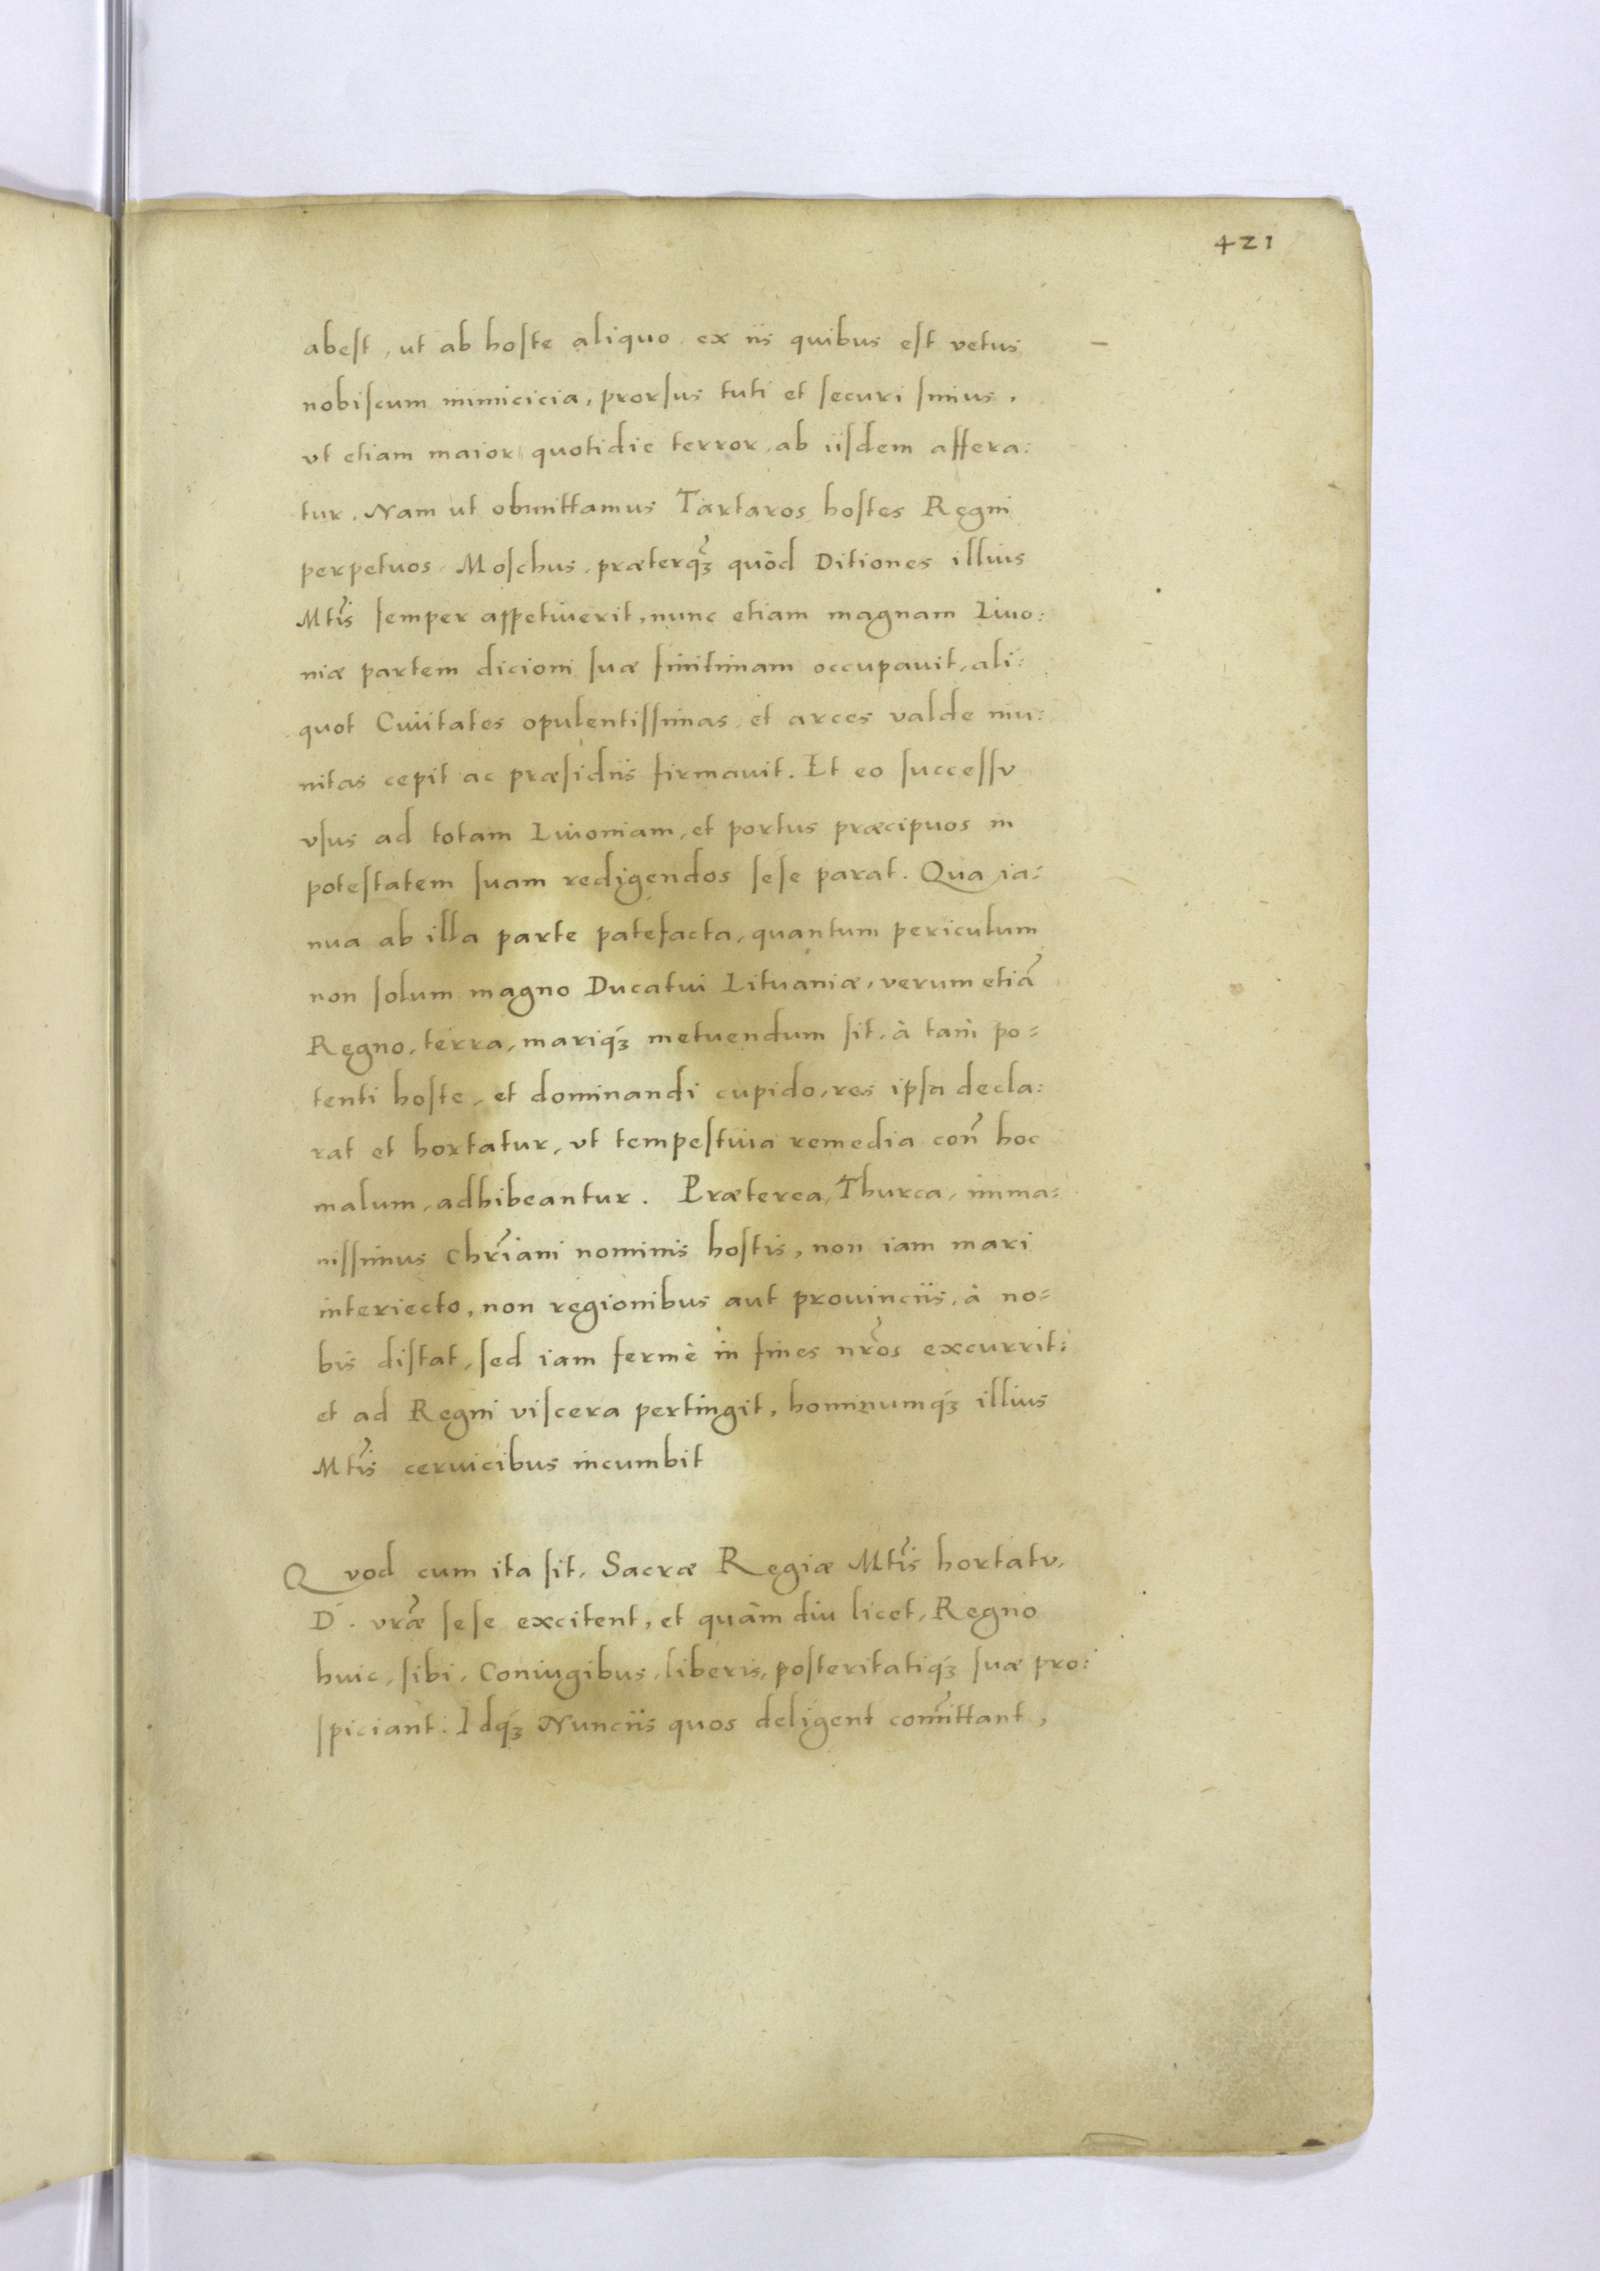 421
abest, ut ab hoste aliquo, ex iis quibus est vetus
nobiscum inimicicia, prorsus tuti et securi simus,
vt etiam maior quotidie terror, ab iisdem affera:
tur. Nam ut obmittamus Tartaros hostes Regni
perpetuos, Moschus, præterq̃ȝ quòd Ditiones illius
Mtis̃ semper appetiuerit, nunc etiam magnam Liuo:
niæ partem dicioni suæ finitimam occupauit, ali:
quot Ciuitates opulentissimas, et arces valde mu:
nitas cepit ac præsidiis firmauit. Et eo successu
vsus ad totam Liuoniam, et portus præcipuos in
potestatem suam redigendos sese parat. Qua ia:
nua ab illa parte patefacta, quantum periculum
non solum magno Ducatui Lituaniæ, verum etiã
Regno, terra, mariq́ȝ metuendum sit, à tam po=
tenti hoste, et dominandi cupido, res ipsa decla:
rat et hortatur, vt tempestiua remedia coñ hoc
malum, adhibeantur. Præterea, Thurca, imma:
nissimus Chr̃iani nominis hostis, non iam mari
interiecto, non regionibus aut prouinciis, à no=
bis distat, sed iam fermè in fines nr̃os excurrit:
et ad Regni viscera pertingit, hominumq́ȝ illius
Mtis̃ ceruicibus incumbit
Qvod cum ita sit, Sacræ Regiæ Mtis̃ hortatu,
D. vr̃æ sese excitent, et quàm diu licet, Regno
huic, sibi, Coniugibus, liberis, posteritatiq́ȝ suæ pro:
spiciant. Idq́ȝ Nunciis quos deligent com̃ittant,